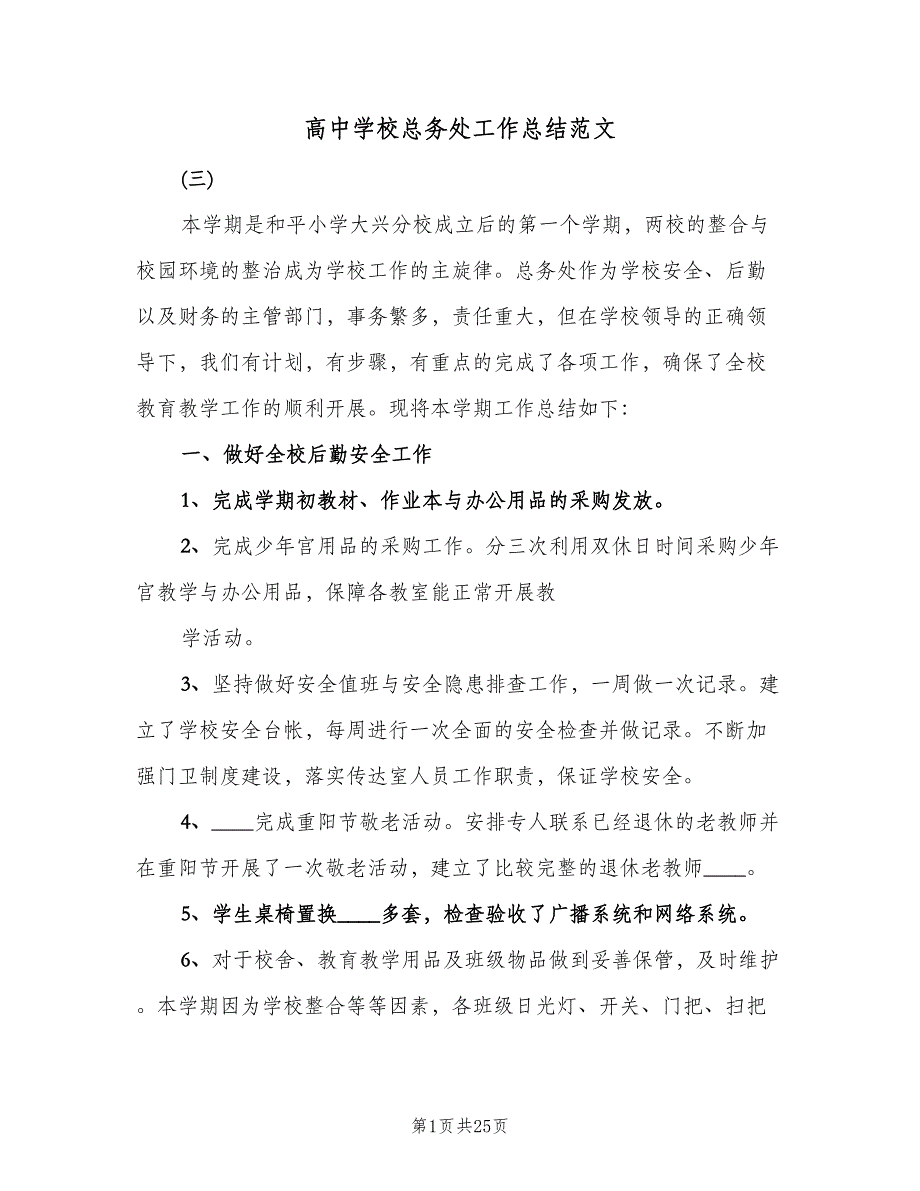 高中学校总务处工作总结范文
(三)
本学期是和平小学大兴分校成立后的第一个学期，两校的整合与
校园环境的整治成为学校工作的主旋律。总务处作为学校安全、后勤
以及财务的主管部门，事务繁多，责任重大，但在学校领导的正确领
导下，我们有计划，有步骤，有重点的完成了各项工作，确保了全校
教育教学工作的顺利开展。现将本学期工作总结如下：
一、做好全校后勤安全工作
1、完成学期初教材、作业本与办公用品的采购发放。
2、完成少年宫用品的采购工作。分三次利用双休日时间采购少年
宫教学与办公用品，保障各教室能正常开展教
学活动。
3、坚持做好安全值班与安全隐患排查工作，一周做一次记录。建
立了学校安全台帐，每周进行一次全面的安全检查并做记录。不断加
强门卫制度建设，落实传达室人员工作职责，保证学校安全。
4、____完成重阳节敬老活动。安排专人联系已经退休的老教师并
在重阳节开展了一次敬老活动，建立了比较完整的退休老教师____。
5、学生桌椅置换____多套，检查验收了广播系统和网络系统。
6、对于校舍、教育教学用品及班级物品做到妥善保管，及时维护
。本学期因为学校整合等等因素，各班级日光灯、开关、门把、扫把
第1页共25页